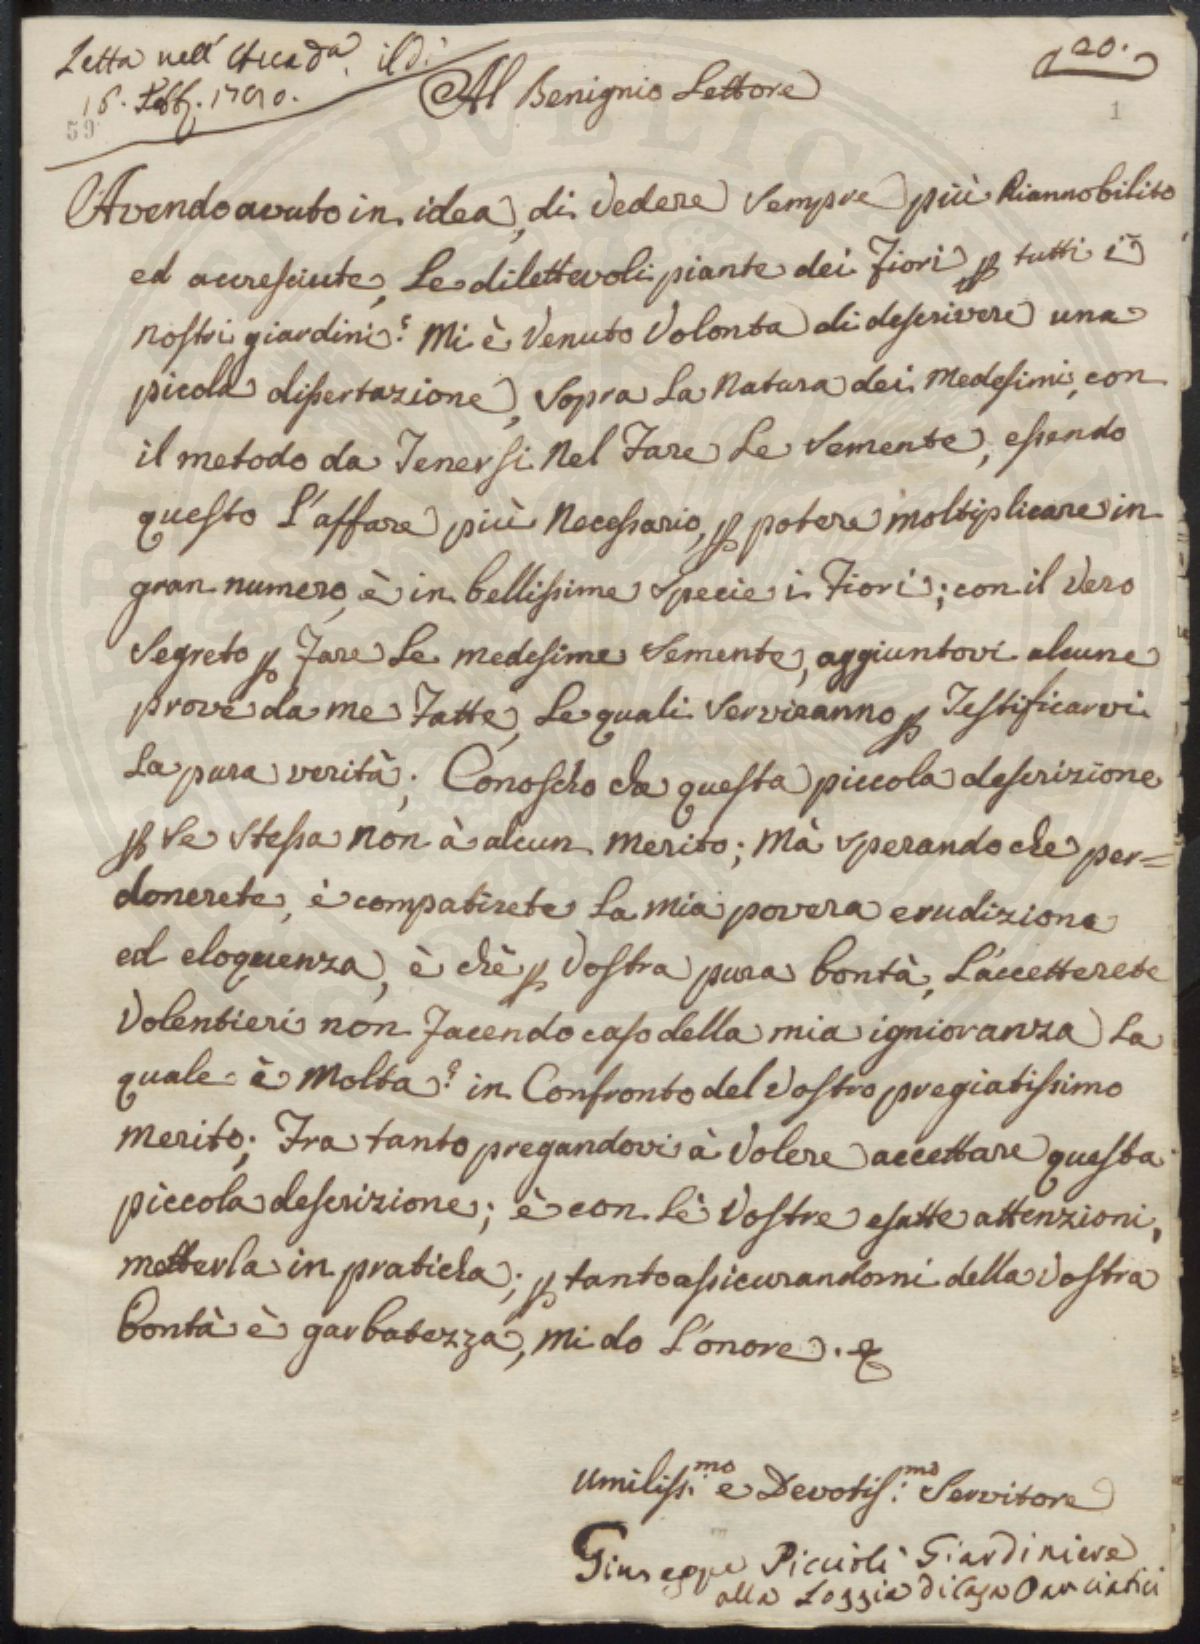 Letta nell' Accad.ª il dì
16. Febb. 1790.
59
20.
1
Al Benignio Lettore
Avendo avuto in idea, di Vedere Sempre più Riannobilito
ed accresciute, Le dilettevoli piante dei Fiori p tutti i
nostri giardini? Mi è Venuto Volonta di descrivere una
picola dissertazione, Sopra La Natura dei Medesimi, con
il metodo da Tenersi Nel Fare Le Semente, essendo
questo L'affare più Necessario, p potere moltiplicare in
gran numero, è in bellissime Specie i Fiori; con il Vero
Segreto p Fare Le medesime Semente, aggiuntovi alcune
prove da me Fatte, Le quali Serviranno p Testificarvi
La pura verità; Conoscho che questa piccola descrizione
p Se Stessa non à alcun merito; Mà Sperando che per=
donerete, è compatirete La mia povera erudizione
ed eloquenza, è chè p Vostra pura bontà, L'accetterete
Volentieri non Facendo caso della mia ignioranza La
quale è Molta? in Confronto del Vostro pregiatissimo
merito; Fra tanto pregandovi à Volere accettare questa
piccola descrizione; è con Lè Vostre esatte attenzioni,
metterla in praticha; p tanto assicurandomi della Vostra
bontà è garbatezza, Mi do L'onore. e
Umiliss.mo e Devotis.mo Servitore
Giuseppe Piccioli Giardiniere
alla Loggia di Casa Panciatici